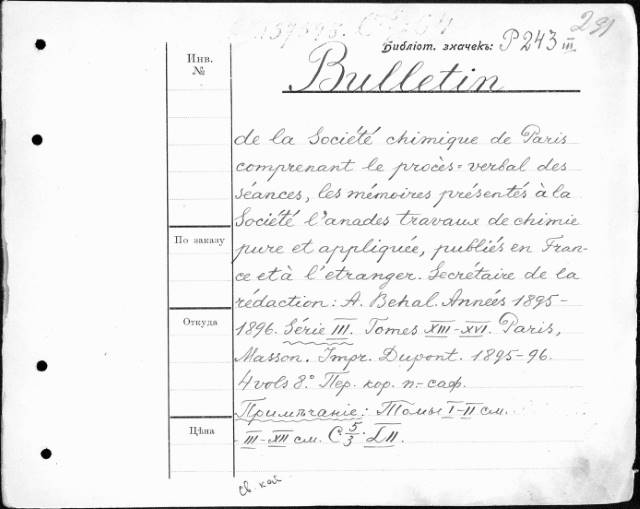 291
Библіот. значекъ: P 243 III
Инв. №
Bulletin
de la Société chimique de Paris
comprenant le procès=verbal des
séances, les mémoires présentés à la
Société l'anades travaux de chimie
pure et appliquée, publiés en Fran-
ce et à l'etranger. Secrétaire de la
rédaction: A. Behal. Années 1895-
1896. Série III. Tomes XIII-XVI. Paris,
Masson. Impr. Dupont. 1895-96.
4 vols 8°. Пер. кор. п.-саф.
Примѣчаніе: Томы I-II см.
III-XII см. C 5/3.
По заказу
Откуда
Цѣна